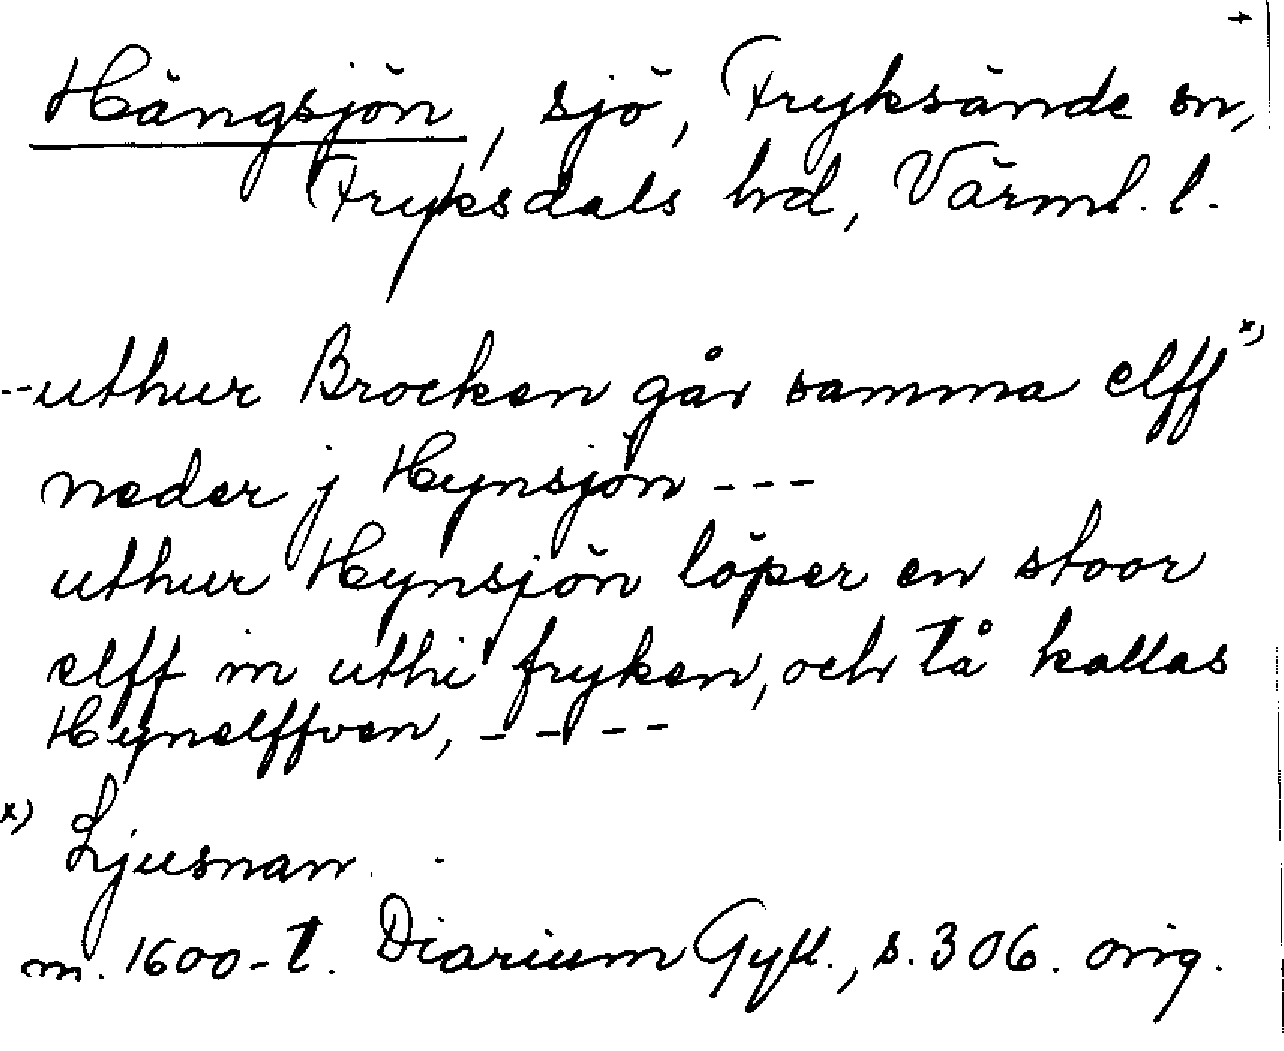 Hängsjön, sjö, Fryksände sn,
Fryksdals hd, Värml. l.
--uthur Brocken går samma elff x)
neder j Hynsjön ---
uthur Hynsjön löper en stoor
elff in uthi fryken, och tå kallas
Hynelffven, ----
x) Ljusnan.
m. 1600-t. Diarium Gyll., s. 306. orig.